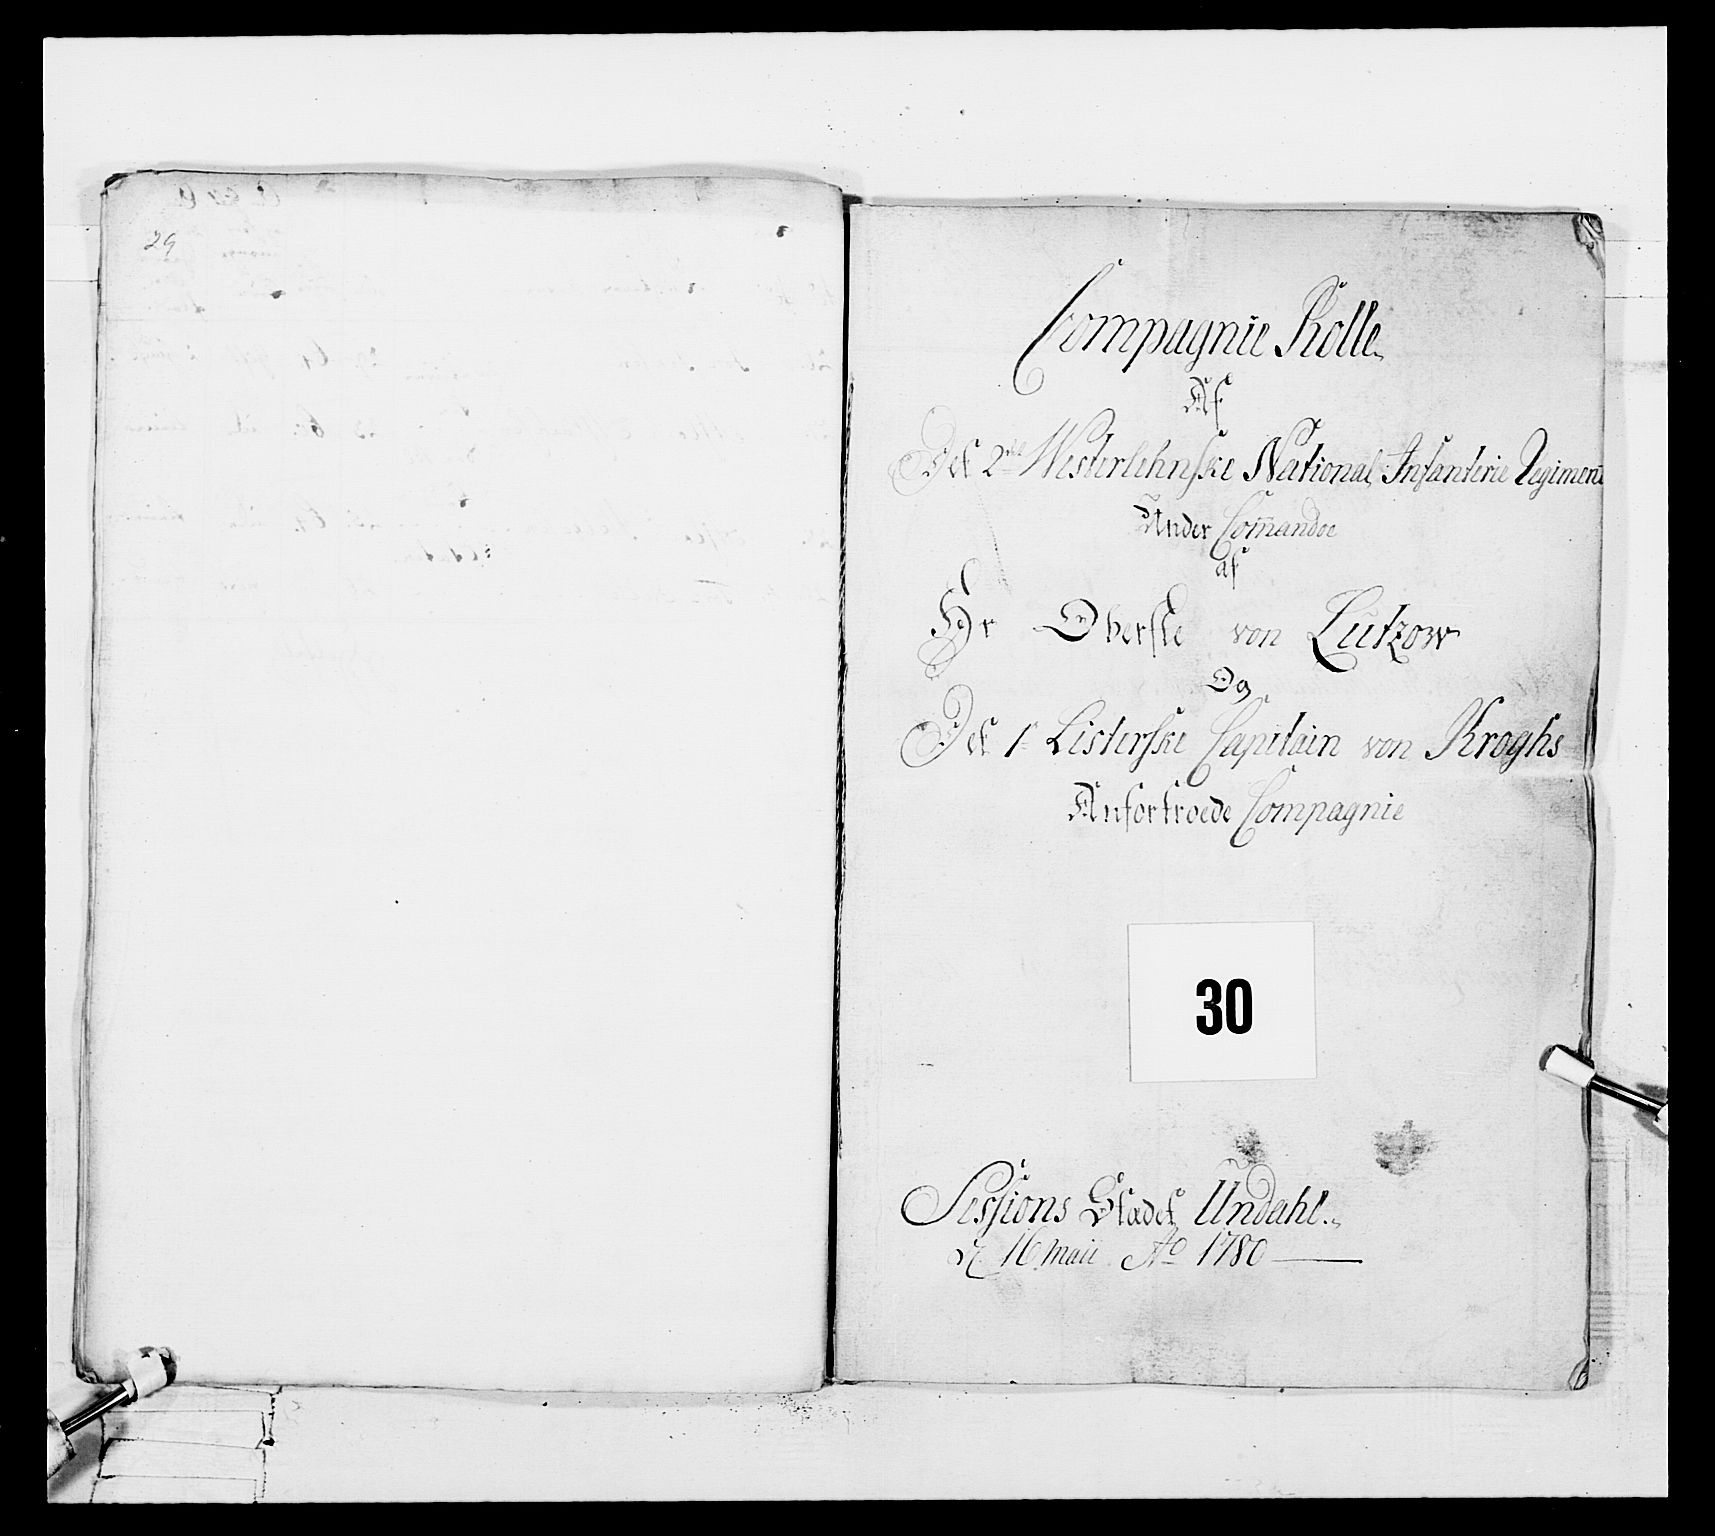 29
Compagnie Rolle
Af
Det 2det Westerlehnske National Infanterie Regiment
Under Com̄andoe
af
Hr Oberste von Lutzow
Og
Det 1te Listerske Capitain von Kroghs
Anfortroede Compagnie
30
Sessions Stædet Undahl
16 Maii Ao 1780